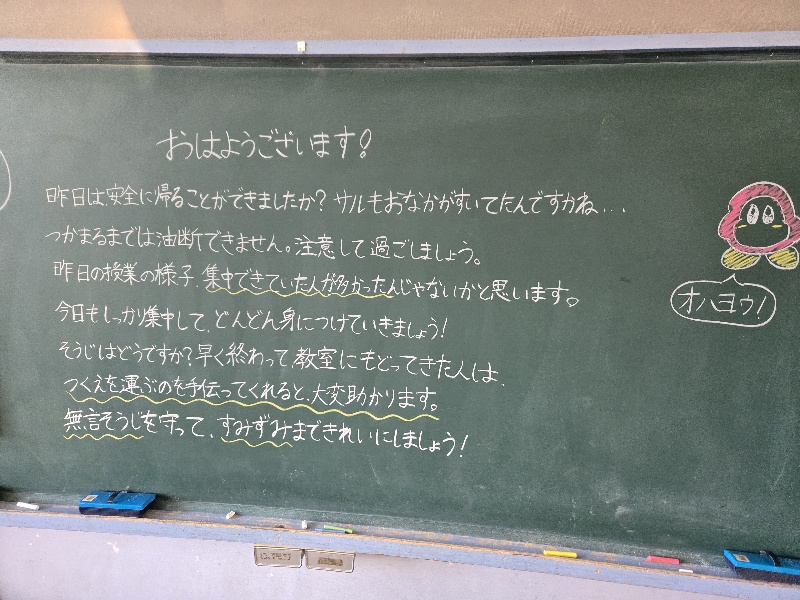 おはようございます!
昨日は安全に帰ることができましたか?サルもおなかがすいてたんですかね...
つかまるまでは油断できません。注意して過ごしましょう。
昨日の授業の様子、集中できていた人が多かったんじゃないかと思います。
今日もしっかり集中して、どんどん身につけていきましょう!
そうじはどうですか?早く終わって、教室にもどってきた人は、
つくえを運ぶのを手伝ってくれると、大変助かります。
無言そうじを守って、すみずみまできれいにしましょう!
オハヨウ!